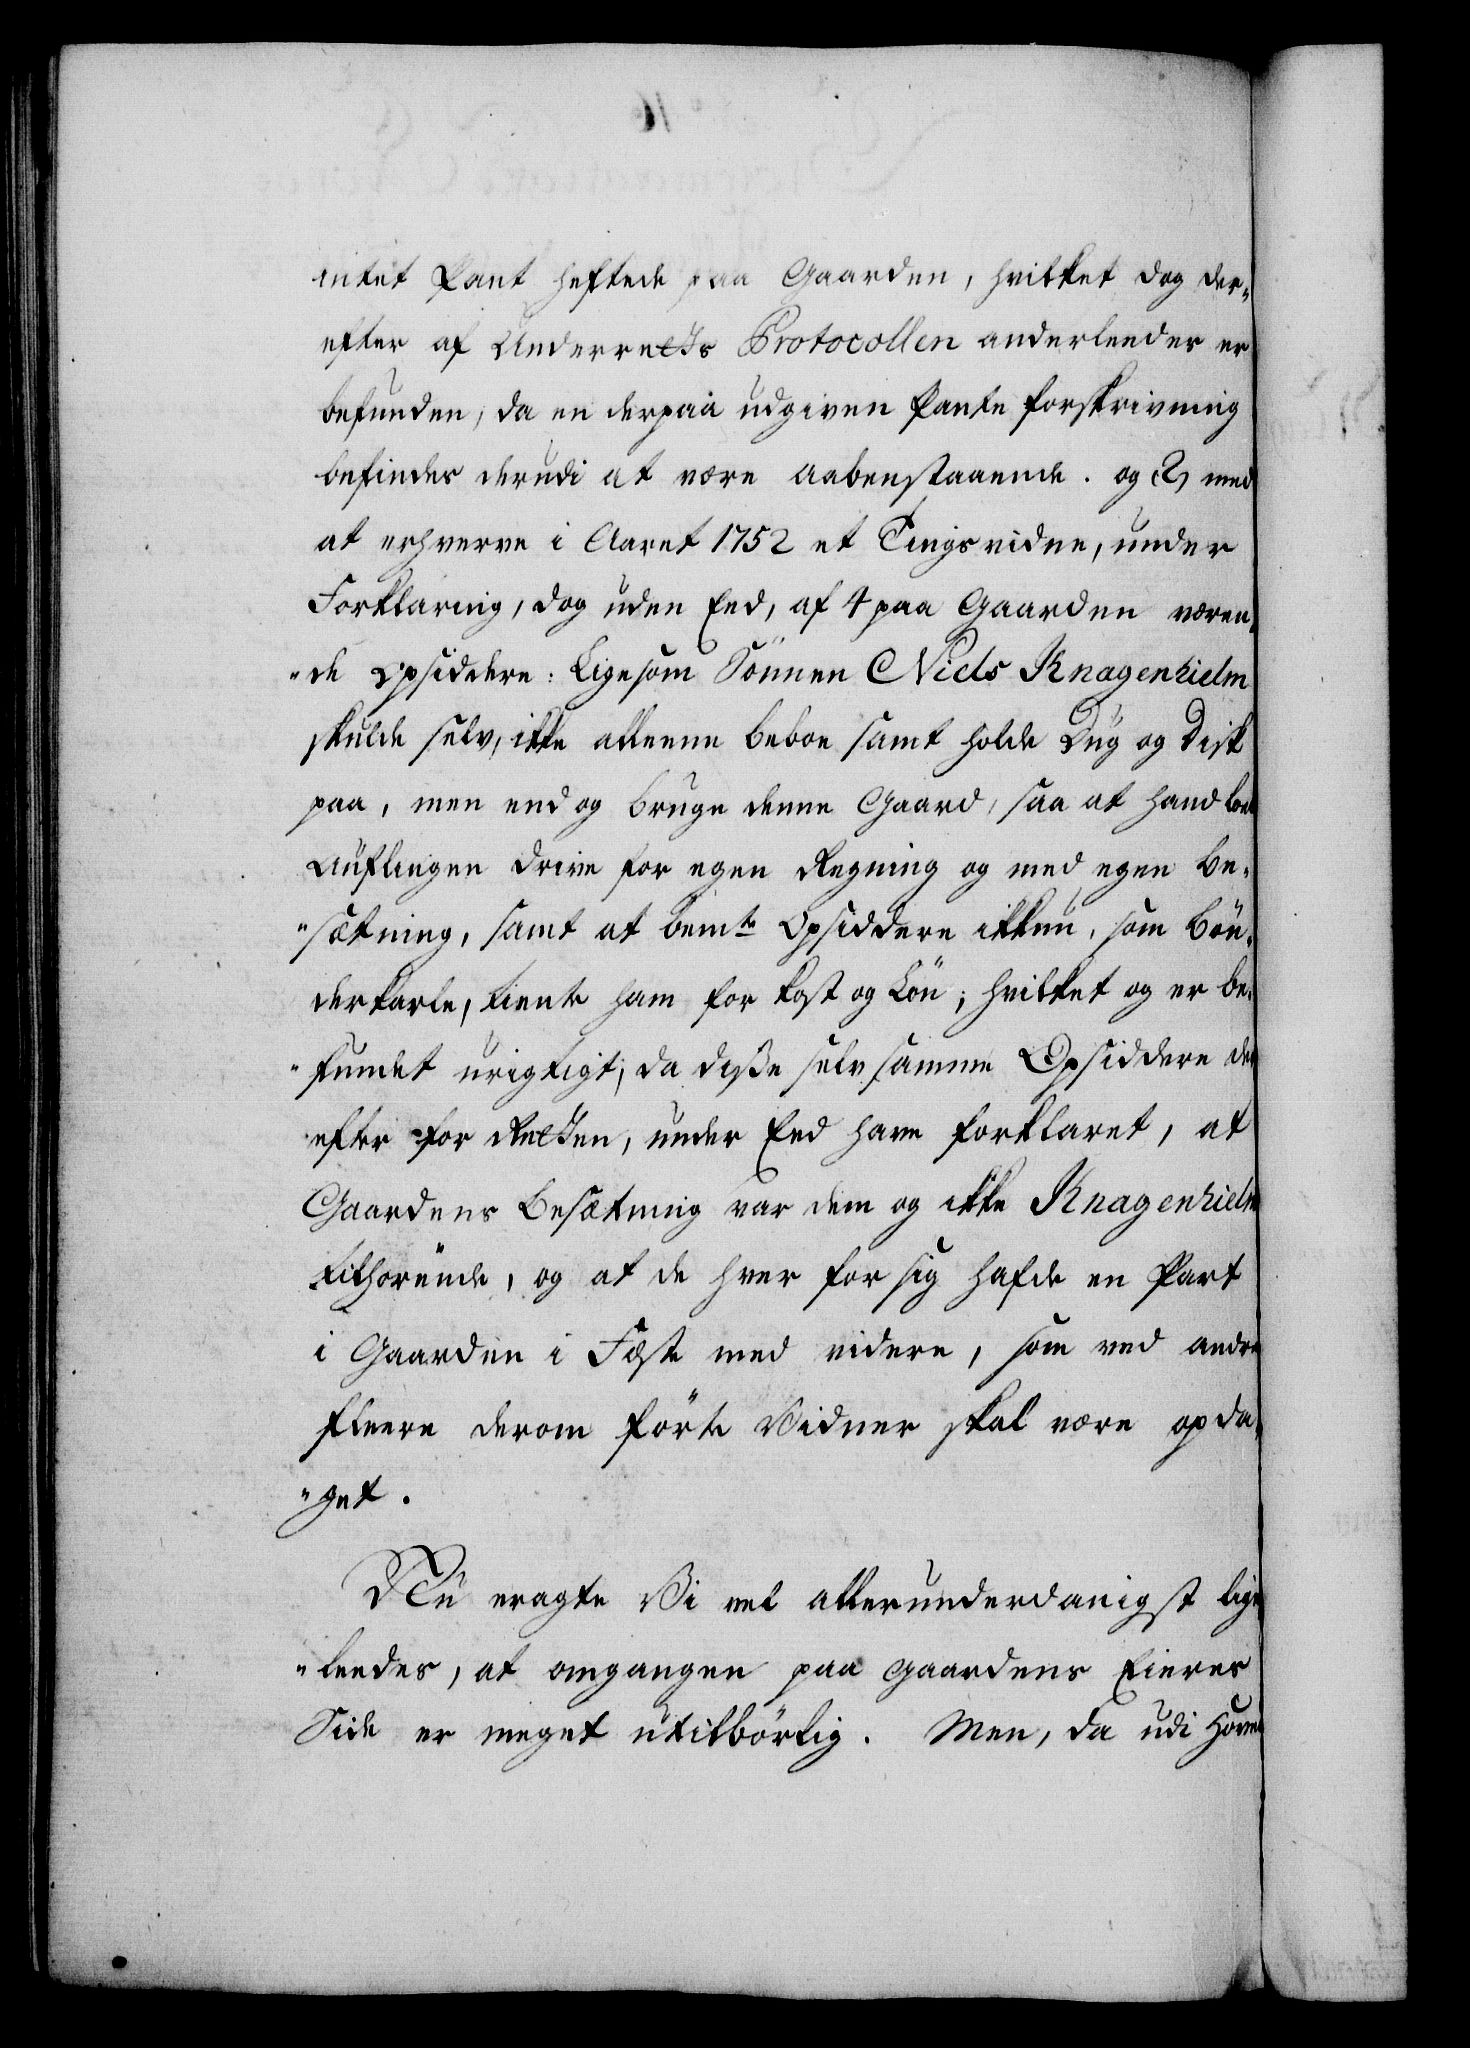 intet Pant heftede paa Gaarden, hvilket dog der„
efter af Underretts Protocollen anderleedes er
befunden, da en derpaa udgiven Pante Forskrivning
befindes derudi at være aabenstaaende. og 2) med
at erhverve i Aaret 1752 et Tingsvidne, under
Forklaring, dog uden Eed, af 4 paa Gaarden væren„
„de Opsiddere: Ligesom Sönnen Niels Knagenhielm
skulde selv, ikke alleene beboe samt holde Dug og Disk
paa, men end og bruge denne Gaard, saa at hand lod
Auflingen drive for egen Regning og med egen Be„
„sætning, samt at bemte Opsiddere ikkun, som Bön„
derkarle, tiente ham for Kost og Lön; hvilket og er be„
„fundet urigtigt, da diße selv samme Opsiddere der
efter for Retten, under Eed have forklaret, at
Gaardens Besætning var dem og ikke Knagenhielm
tilhörende, og at de hver for sig hafde en Part
i Gaarden i Fæste med videre, som ved andre
fleere derom förte Vidner skal være opda„
„get.
Nu eragte Vi vel allerunderdanigst lige
„leedes, at omgangen paa Gaardens Eieres
Side er meget utilbörlig. Men, da udi Hoved